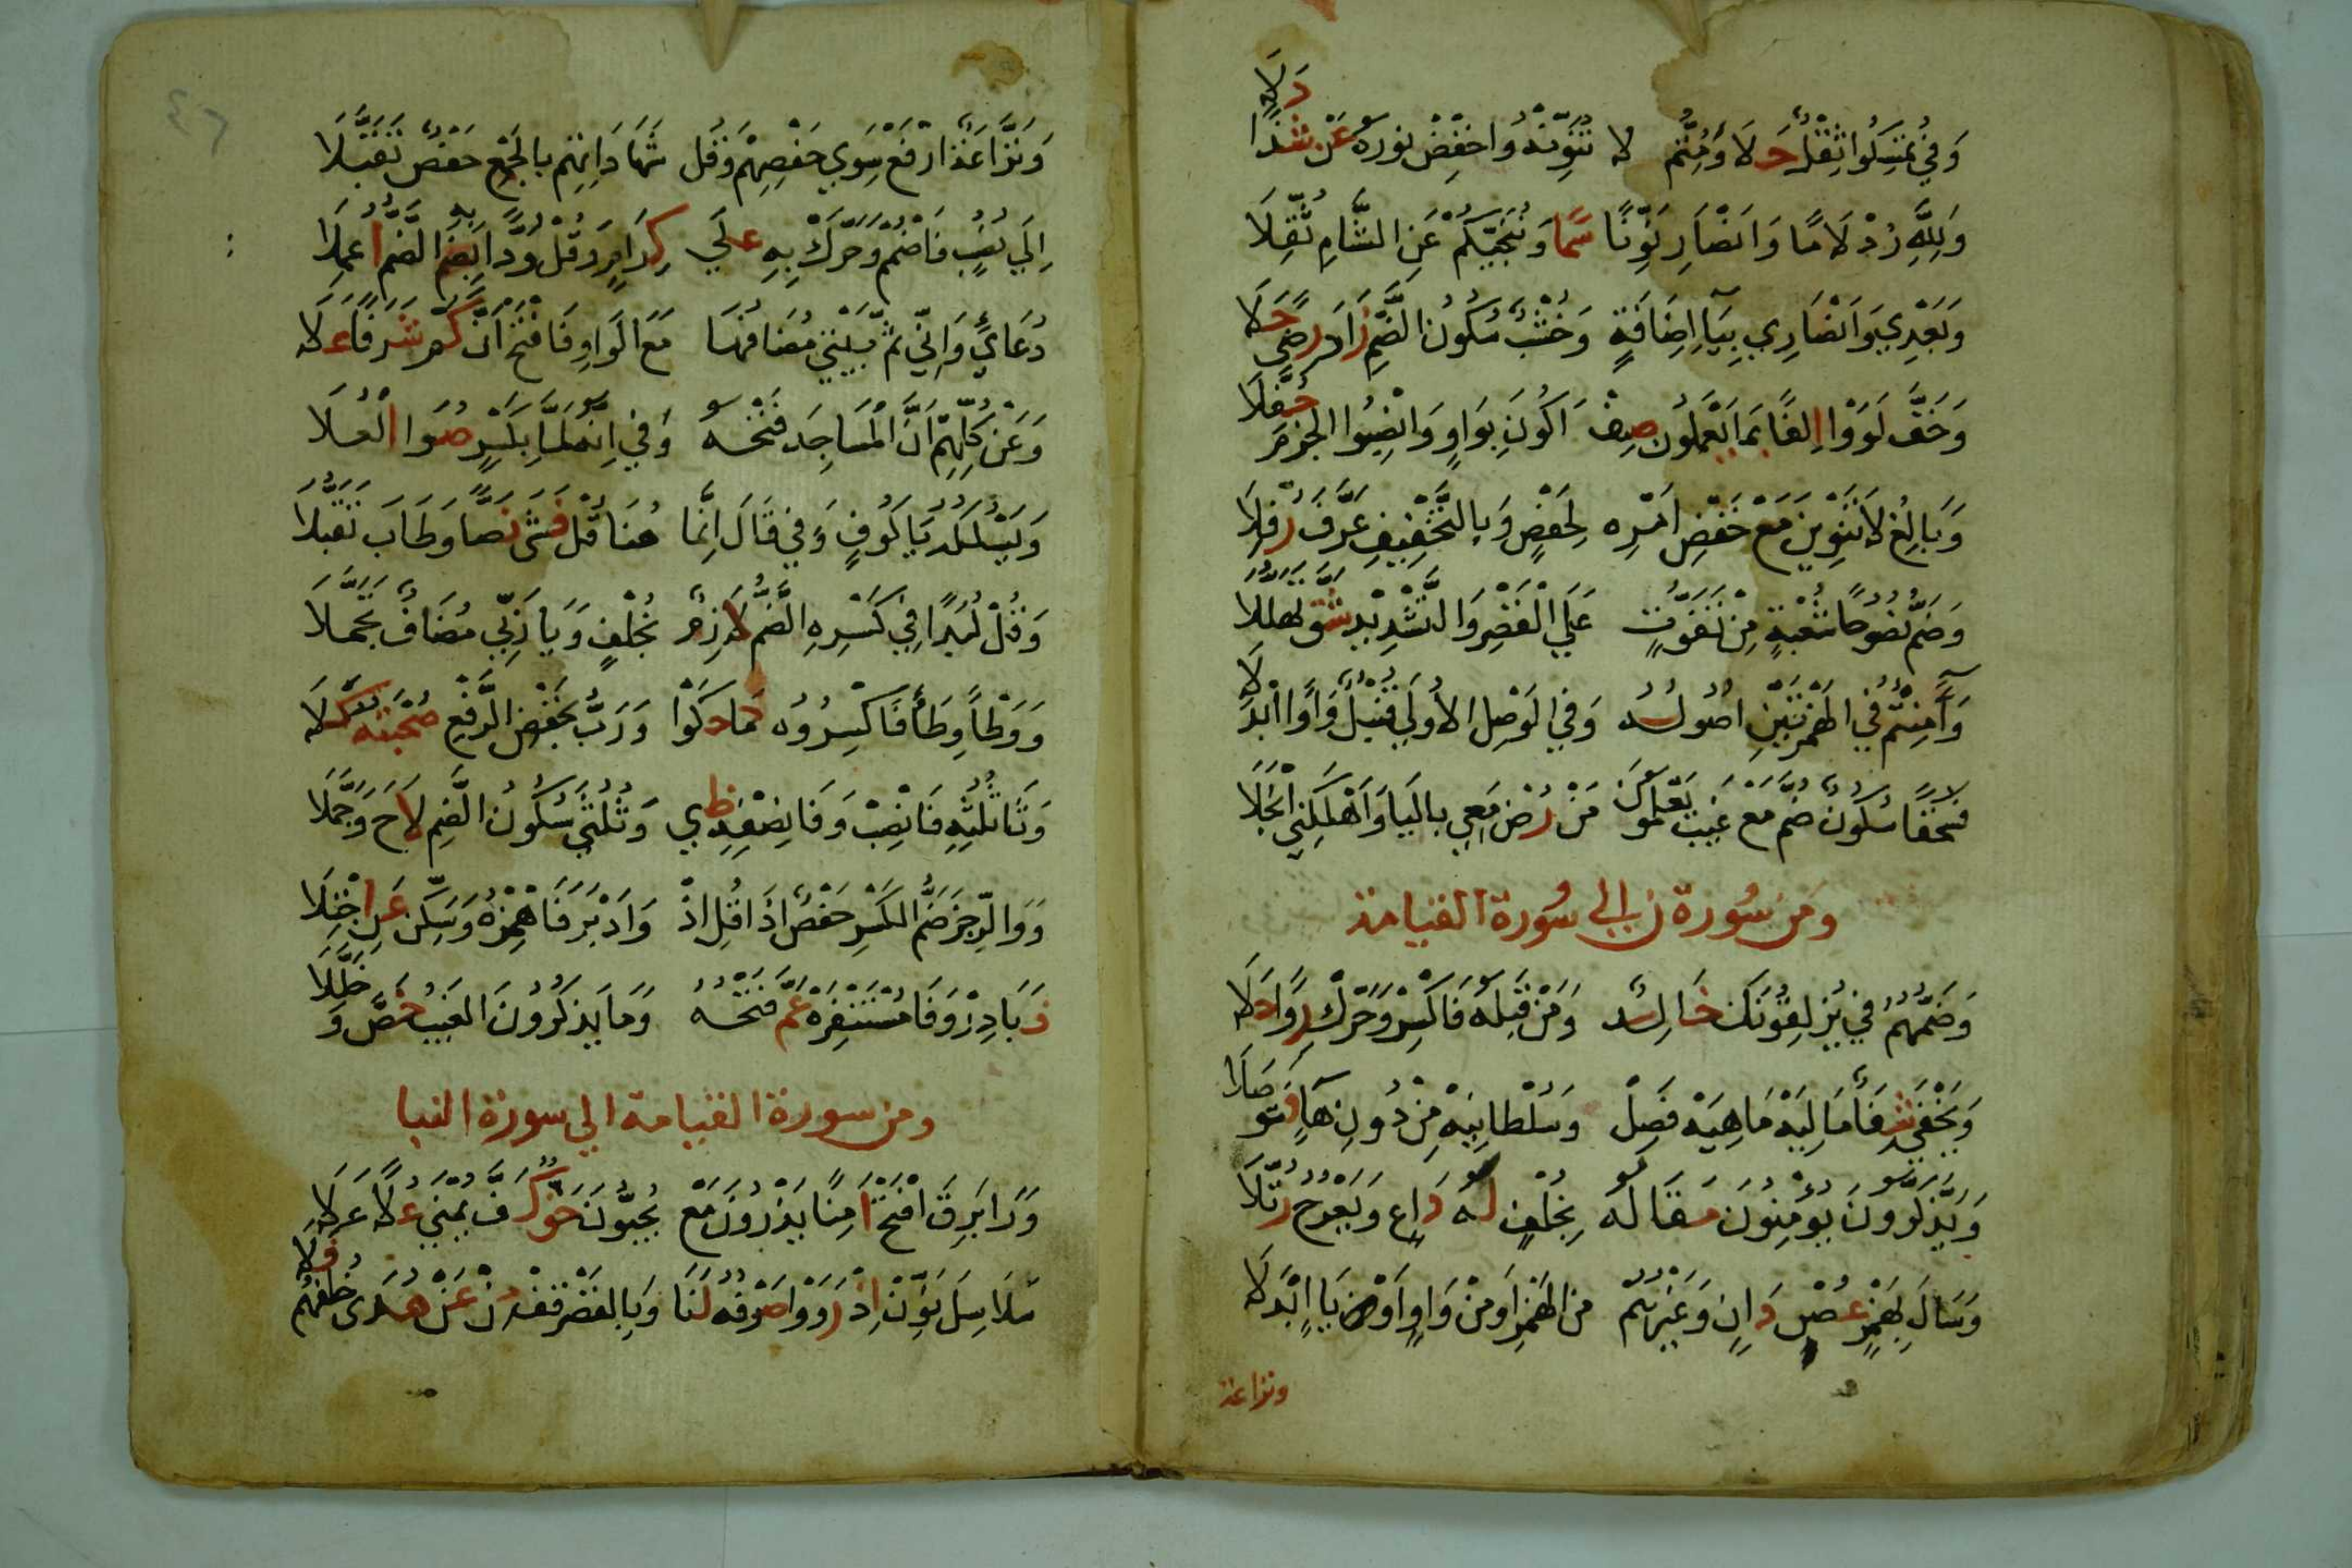 وَفِي تُمْسِكُوا ثِقْلٌ حَلَا وَمُتِمُّ لَا تُنَوِّنْهُ وَاخْفِضْ نُورَهُ عَنْ شَذًا دَلَا
وَلِلَّهِ زِدْ لَامًا وَانْصَارَ نَوِّنًا سَمَا وَتُنَجِّيكُمْ عَنِ الشَّامِ ثُقِّلَا
وَبَعْدِي وَانْصَارِي بِيَاءِ إِضَافَةٍ وَخُشْبٌ سُكُونُ الضَّمِّ زَادَ رِضًى حَلَا
وَخَفَّ لَوَوْا إِلْفًا بِمَا يَعْمَلُونَ صِفْ أَكُونَ بِوَاوٍ وَانْصِبُوا الْجَزْمَ حُفَّلَا
وَبَالِغُ لَا تَنْوِينَ مَعْ خَفْضِ أَمْرِهِ لِحَفْصٍ وَبِالتَّخْفِيفِ عَرَّفَ رُفِّلَا
وَضَمَّ نُصُوحًا شُعْبَةٌ مِنْ تَفَوُّتٍ عَلَى الْقَصْرِ وَالتَّشْدِيدِ شُقَّ تَهَلُّلَا
وَآمِنْتُمُ فِي الْهَمْزَتَيْنِ أُصُولُهُ وَفِي الْوَصْلِ الْاُولَى قُنْبُلٌ وَاوًا ابْدَلَا
فَسُحْقًا سُكُونٌ ضُمَّ مَعْ غَيْبِ يَعْلَمُونَ مَنْ رُضْ مَعِي بِالْيَا وَأَهْلَكَنِي انْجَلَا
ومن سورة ن إلى سورة القيامة
وَضَمُّهُمُ فِي يُزْلِقُونَكَ خَالِدٌ وَمَنْ قَبْلَهُ فَاكْسِرْ وَحَرِّكْ رِوًا حَلَا
وَيَخْفَى شِفَاءً مَالِيَهْ مَاهِيَهْ فَصِلْ وَسُلْطَانِيَهْ مِنْ دُونِ هَاءٍ فَتُوصَلَا
وَيَذَّكَّرُونَ يُؤْمِنُونَ مَقَالُهُ بِخُلْفٍ لَهُ دَاعٍ وَيَعْرُجُ رُتِّلَا
وَسَالَ بِهَمْزٍ غُصْنُ دَانٍ وَغَيْرُهُمْ مِنَ الْهَمْزِ أَوْ مِنْ وَاوٍ أَوْ مِنْ يَاءٍ ابْدَلَا
ونزاعة
٤٦
وَنَزَّاعَةً فَارْفَعْ سِوَى حَفْصِهِمْ وَقُلْ شَهَادَاتِهِمْ بِالْجَمْعِ حَفْصٌ تَقَبَّلَا
إِلَى نُصُبٍ فَاضْمُمْ وَحَرِّكْ بِهِ عَلَى كِرَامٍ وَقُلْ وُدًّا بِهِ الضَّمُّ أُعْمِلَا
دُعَائِي وَإِنِّي ثُمَّ بَيْتِي مُضَافُهَا مَعَ الْوَاوِ فَافْتَحْ إِنَّ كَمْ شَرَفًا عَلَا
وَعَنْ كُلِّهِمْ أَنَّ الْمَسَاجِدَ فَتْحُهُ وَفِي إِنَّهُ لَمَّا بِكَسْرٍ صُوَى الْعُلَا
وَيَسْلُكْهُ يَا كُوفٍ وَفِي قَالَ إِنَّمَا هُنَا قُلْ فَشَى نَصًّا وَطَابَ تَقَبُّلَا
وَقُلْ لُبَدًا فِي كَسْرِهِ الضَّمُّ لَازِمٌ بِخُلْفٍ وَيَا رَبِّي مُضَافٌ تَجَمَّلَا
وَوَطْأً وِطَاءً فَاكْسِرُوهُ كَمَا حَكَوْا وَرَبُّ بِخَفْضِ الرَّفْعِ صُحْبَتُهُ كَلَا
وَثَا ثُلْثِهِ فَانْصِبْ وَفَا نِصْفِهِ ظُبًى وَثُلْثَيْ سُكُونُ الضَّمِّ لَاحَ وَجَمَّلَا
وَوَالرِّجْزَ ضَمَّ الْكَسْرَ حَفْصٌ إِذَا قُلِ إِذْ وَأَدْبَرَ فَاهْمِزْهُ وَسَكِّنْ عَنِ اجْتِلَا
فَبَادِرْ وَفَا مُسْتَنْفِرَهْ عَمَّ فَتْحُهُ وَمَا يَذْكُرُونَ الْغَيْبَ خُصَّ وَخُلِّلَا
ومن سورة القيامة الى سورة النبا
وَرَا بَرَقَ افْتَحْ آمِنًا يَذَرُونَ مَعْ يُحِبُّونَ حَقٌّ كَفَّ يُمْنَى عُلًا عَلَا
سَلَاسِلَ نَوِّنْ إِذْ رَوَوْا صَرْفَهُ لَنَا وَبِالْقَصْرِ قِفْ مِنْ عَنْ هُدًى خُلْفُهُمْ فَلَا